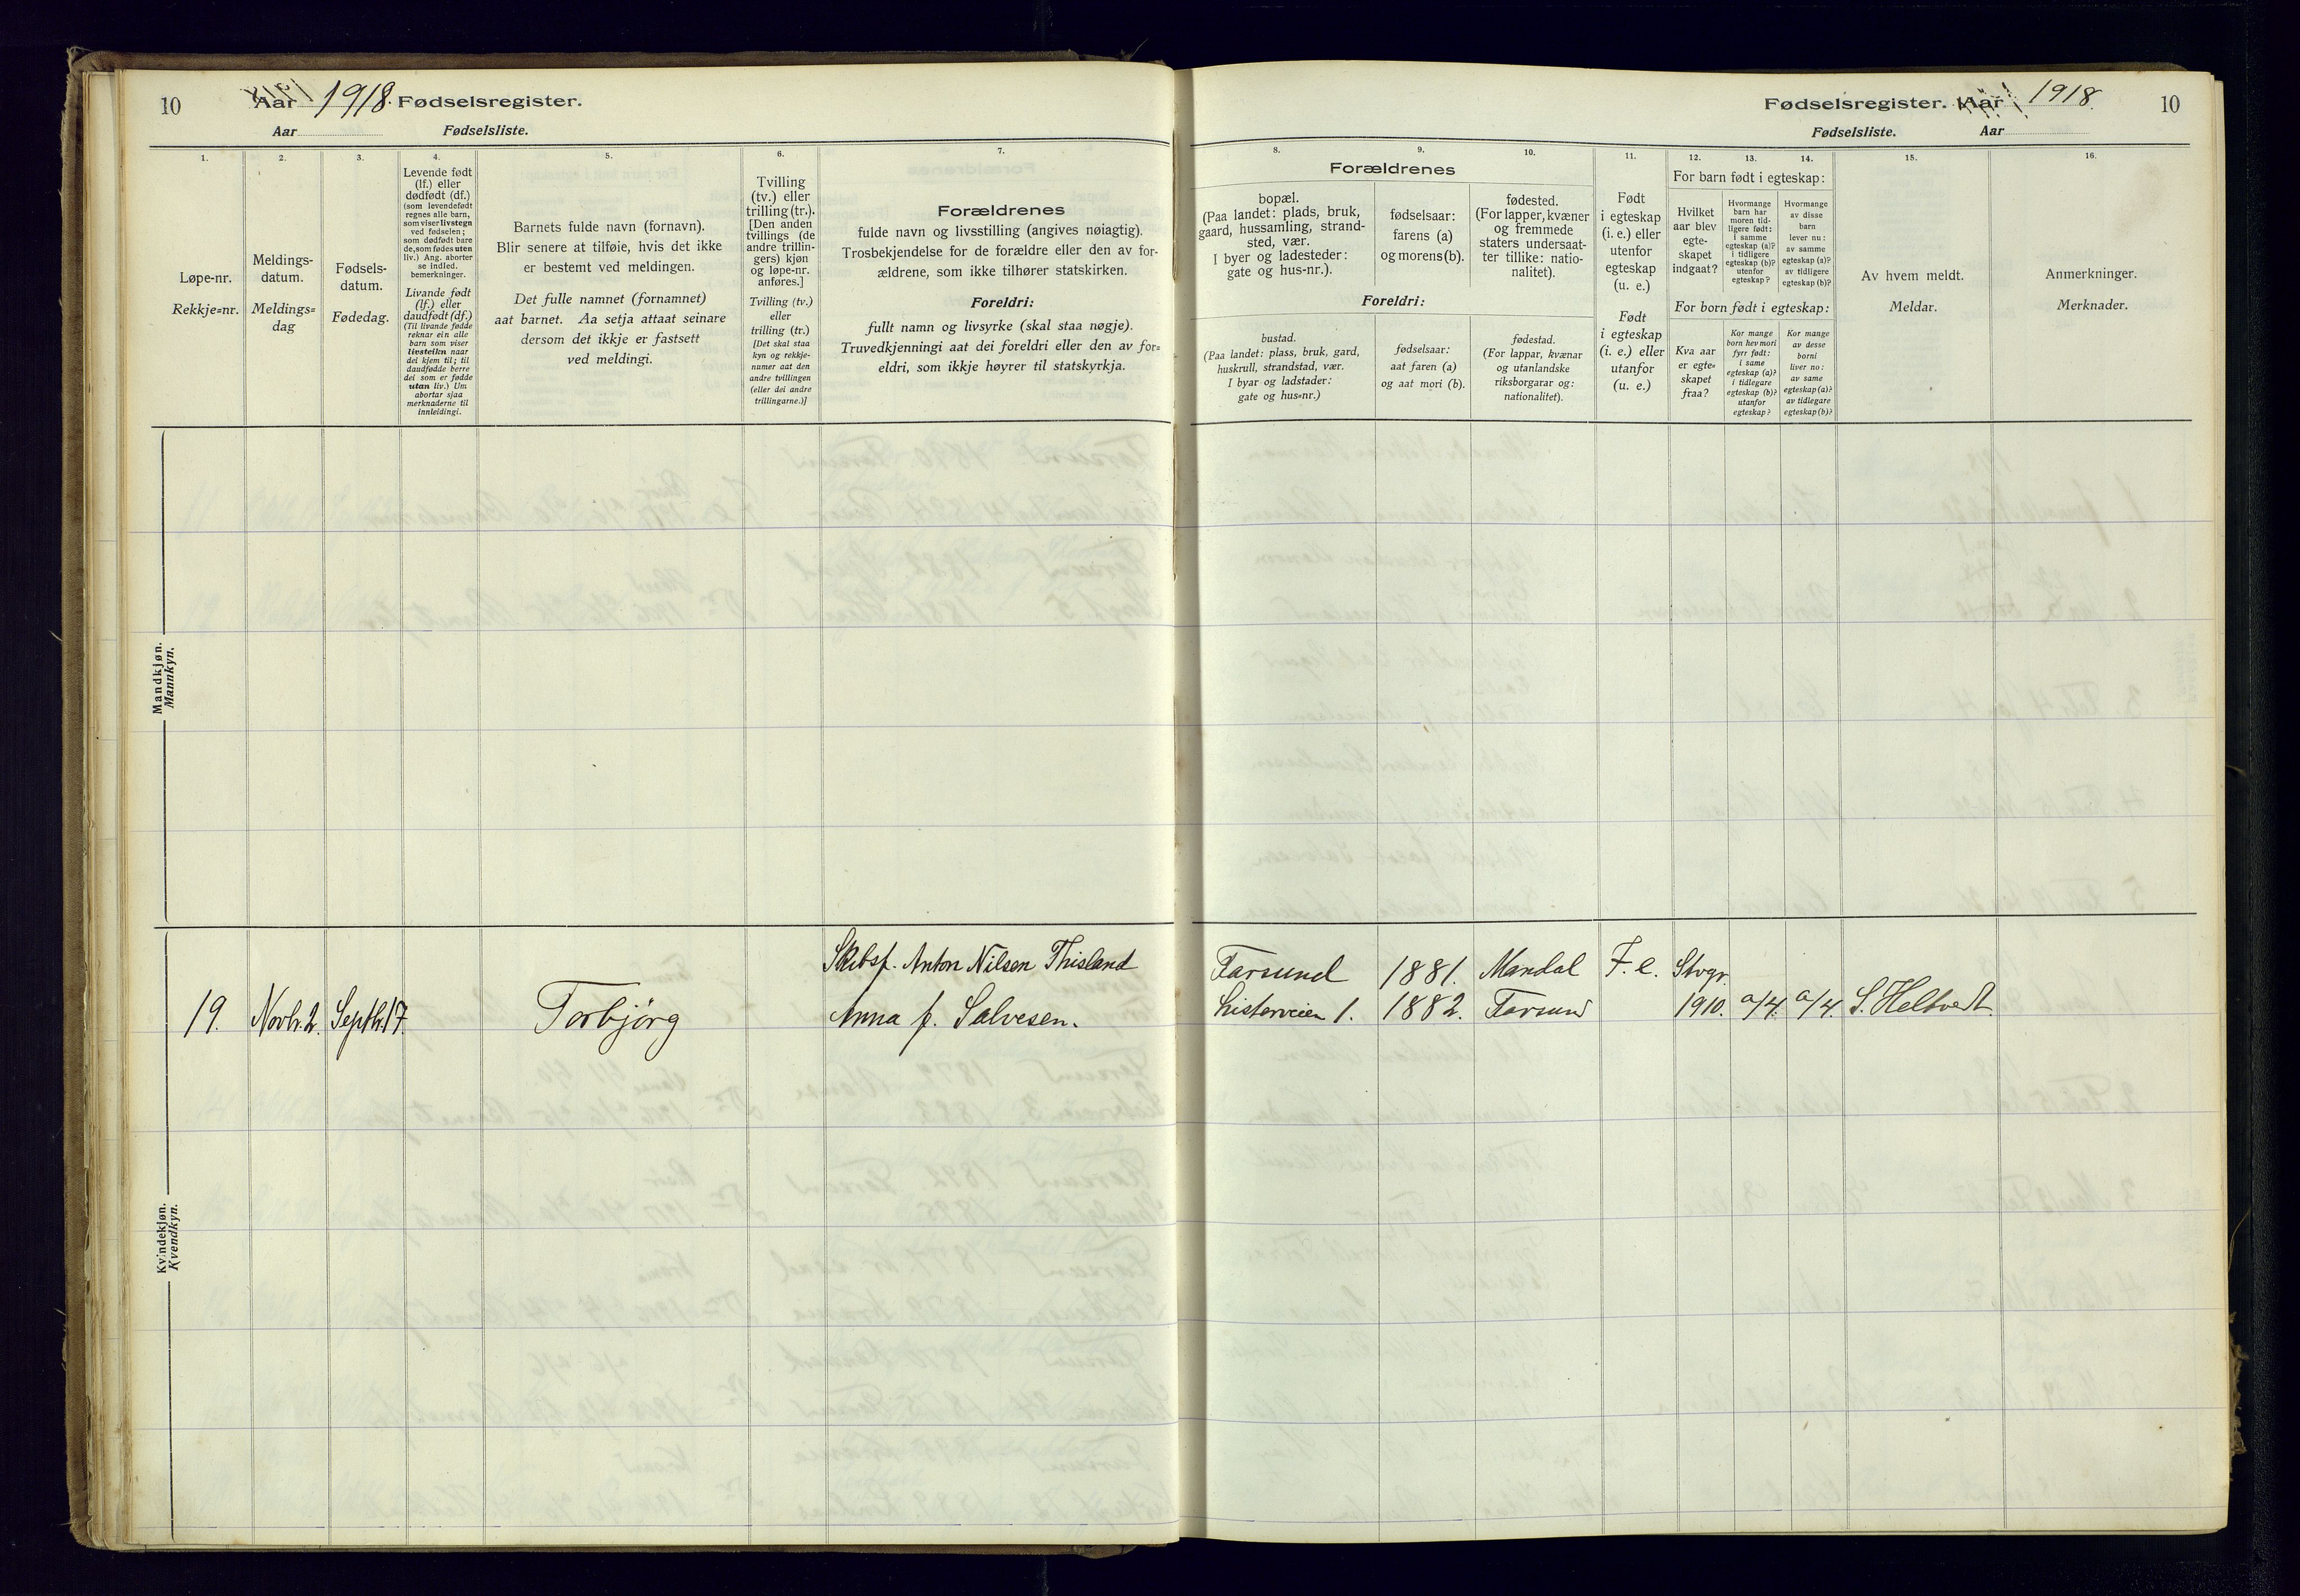 10
Aar 1918. Fødselsregister.
Aar Fødselsliste.
1.
2.
3.
4.
5.
6.
7.
Løpe-nr.
Rekkje=nr.
Meldings-
datum.
Meldings=
dag
Fødsels-
datum.
Fødedag.
Levende født
(lf.) eller
dødfødt (df.)
(som levendefødt
regnes alle barn,
som viser livstegn
ved fødselen;
som dødfødt bare
de, som fødes uten
liv.) Ang. aborter
se indled.
bemerkninger.
Livande født
(lf.) eller
daudfødt (df.)
(Til livande fødde
reknar ein alle
barn som viser
livsteikn naar
dei kjem til; til
daudfødde berre
dei som er fødde
utan liv.) Um
abortar sjaa
merknaderne til
innleidingi.
Barnets fulde navn (fornavn).
Blir senere at tilføie, hvis det ikke
er bestemt ved meldingen.
Det fulle namnet (fornamnet)
aat barnet. Aa setja attaat seinare
dersom det ikkje er fastsett
ved meldingi.
Tvilling
(tv.) eller
trilling (tr.).
[Den anden
tvillings (de
andre trillin-
gers) kjøn
og løpe-nr.
anføres.]
Tvilling (tv.)
eller
trilling (tr.)
[Det skal staa
kyn og rekkje-
numer aat den
andre tvillingen
(eller dei andre
trillingarne.)]
Forældrenes
fulde navn og livsstilling (angives nøiagtig).
Trosbekjendelse for de forældre eller den av for-
ældrene, som ikke tilhører statskirken.
Foreldri:
fullt namn og livsyrke (skal staa nøgje).
Truvedkjenningi aat dei foreldri eller den av for=
eldri, som ikkje høyrer til statskyrkja.
Mandkjøn.
Mannkyn.
Kvindekjøn.
Kvendkyn.
19. Novbr. 2. Septbr. 17. Torbjörg
Skibsf. Anton Nilsen Thisland
Anna f. Salvesen.
Fødselsregister. Aar 1918.
10
Fødselsliste. Aar
8.
9.
10.
11.
12.
13.
14.
15.
16.
Forældrenes
bopæl.
(Paa landet: plads, bruk,
gaard, hussamling, strand-
sted, vær.
I byer og ladesteder:
gate og hus-nr.).
fødselsaar:
farens (a)
og morens (b).
fødested.
(For lapper, kvæner
og fremmede
staters undersaat-
ter tillike: natio-
nalitet).
Foreldri:
bustad.
(Paa landet: plass, bruk, gard,
huskrull, strandstad, vær.
I byar og ladstader:
gate og hus=nr.)
fødselsaar:
aat faren (a)
og aat mori (b).
fødestad.
(For lappar, kvænar
og utanlandske
riksborgarar og:
nationalitet).
Født
i egteskap
(i. e.) eller
utenfor
egteskap
(u. e.)
Født
i egteskap
(i. e.) eller
utanfor
(u. e.)
For barn født i egteskap:
Hvilket
aar blev
egte-
skapet
indgaat?
Hvormange
barn har
moren tid-
ligere født:
i samme
egteskap (a)?
i tidligere
egteskap (b)?
utenfor
egteskap?
Hvormange
av disse
barn
lever nu:
av samme
egteskap (a)?
av tidligere
egteskap (b)?
For born født i egteskap:
Kva aar
er egte=
skapet
fraa?
Kor mange
born hev mori
fyrr født:
i same
egteskap (a)?
i tidlegare
egteskap (b)?
utanfor
egteskap?
Kor mange
av desse
borni
liver no:
av same
egteskap (a)?
av tidlegare
egteskap (b)?
Av hvem meldt.
Meldar.
Anmerkninger.
Merknader.
Farsund 1881. Mandal F. e. Stvgr.
Listerveien 1. 1882. Farsund 1910. a/4. a/4. S. Heltvedt.